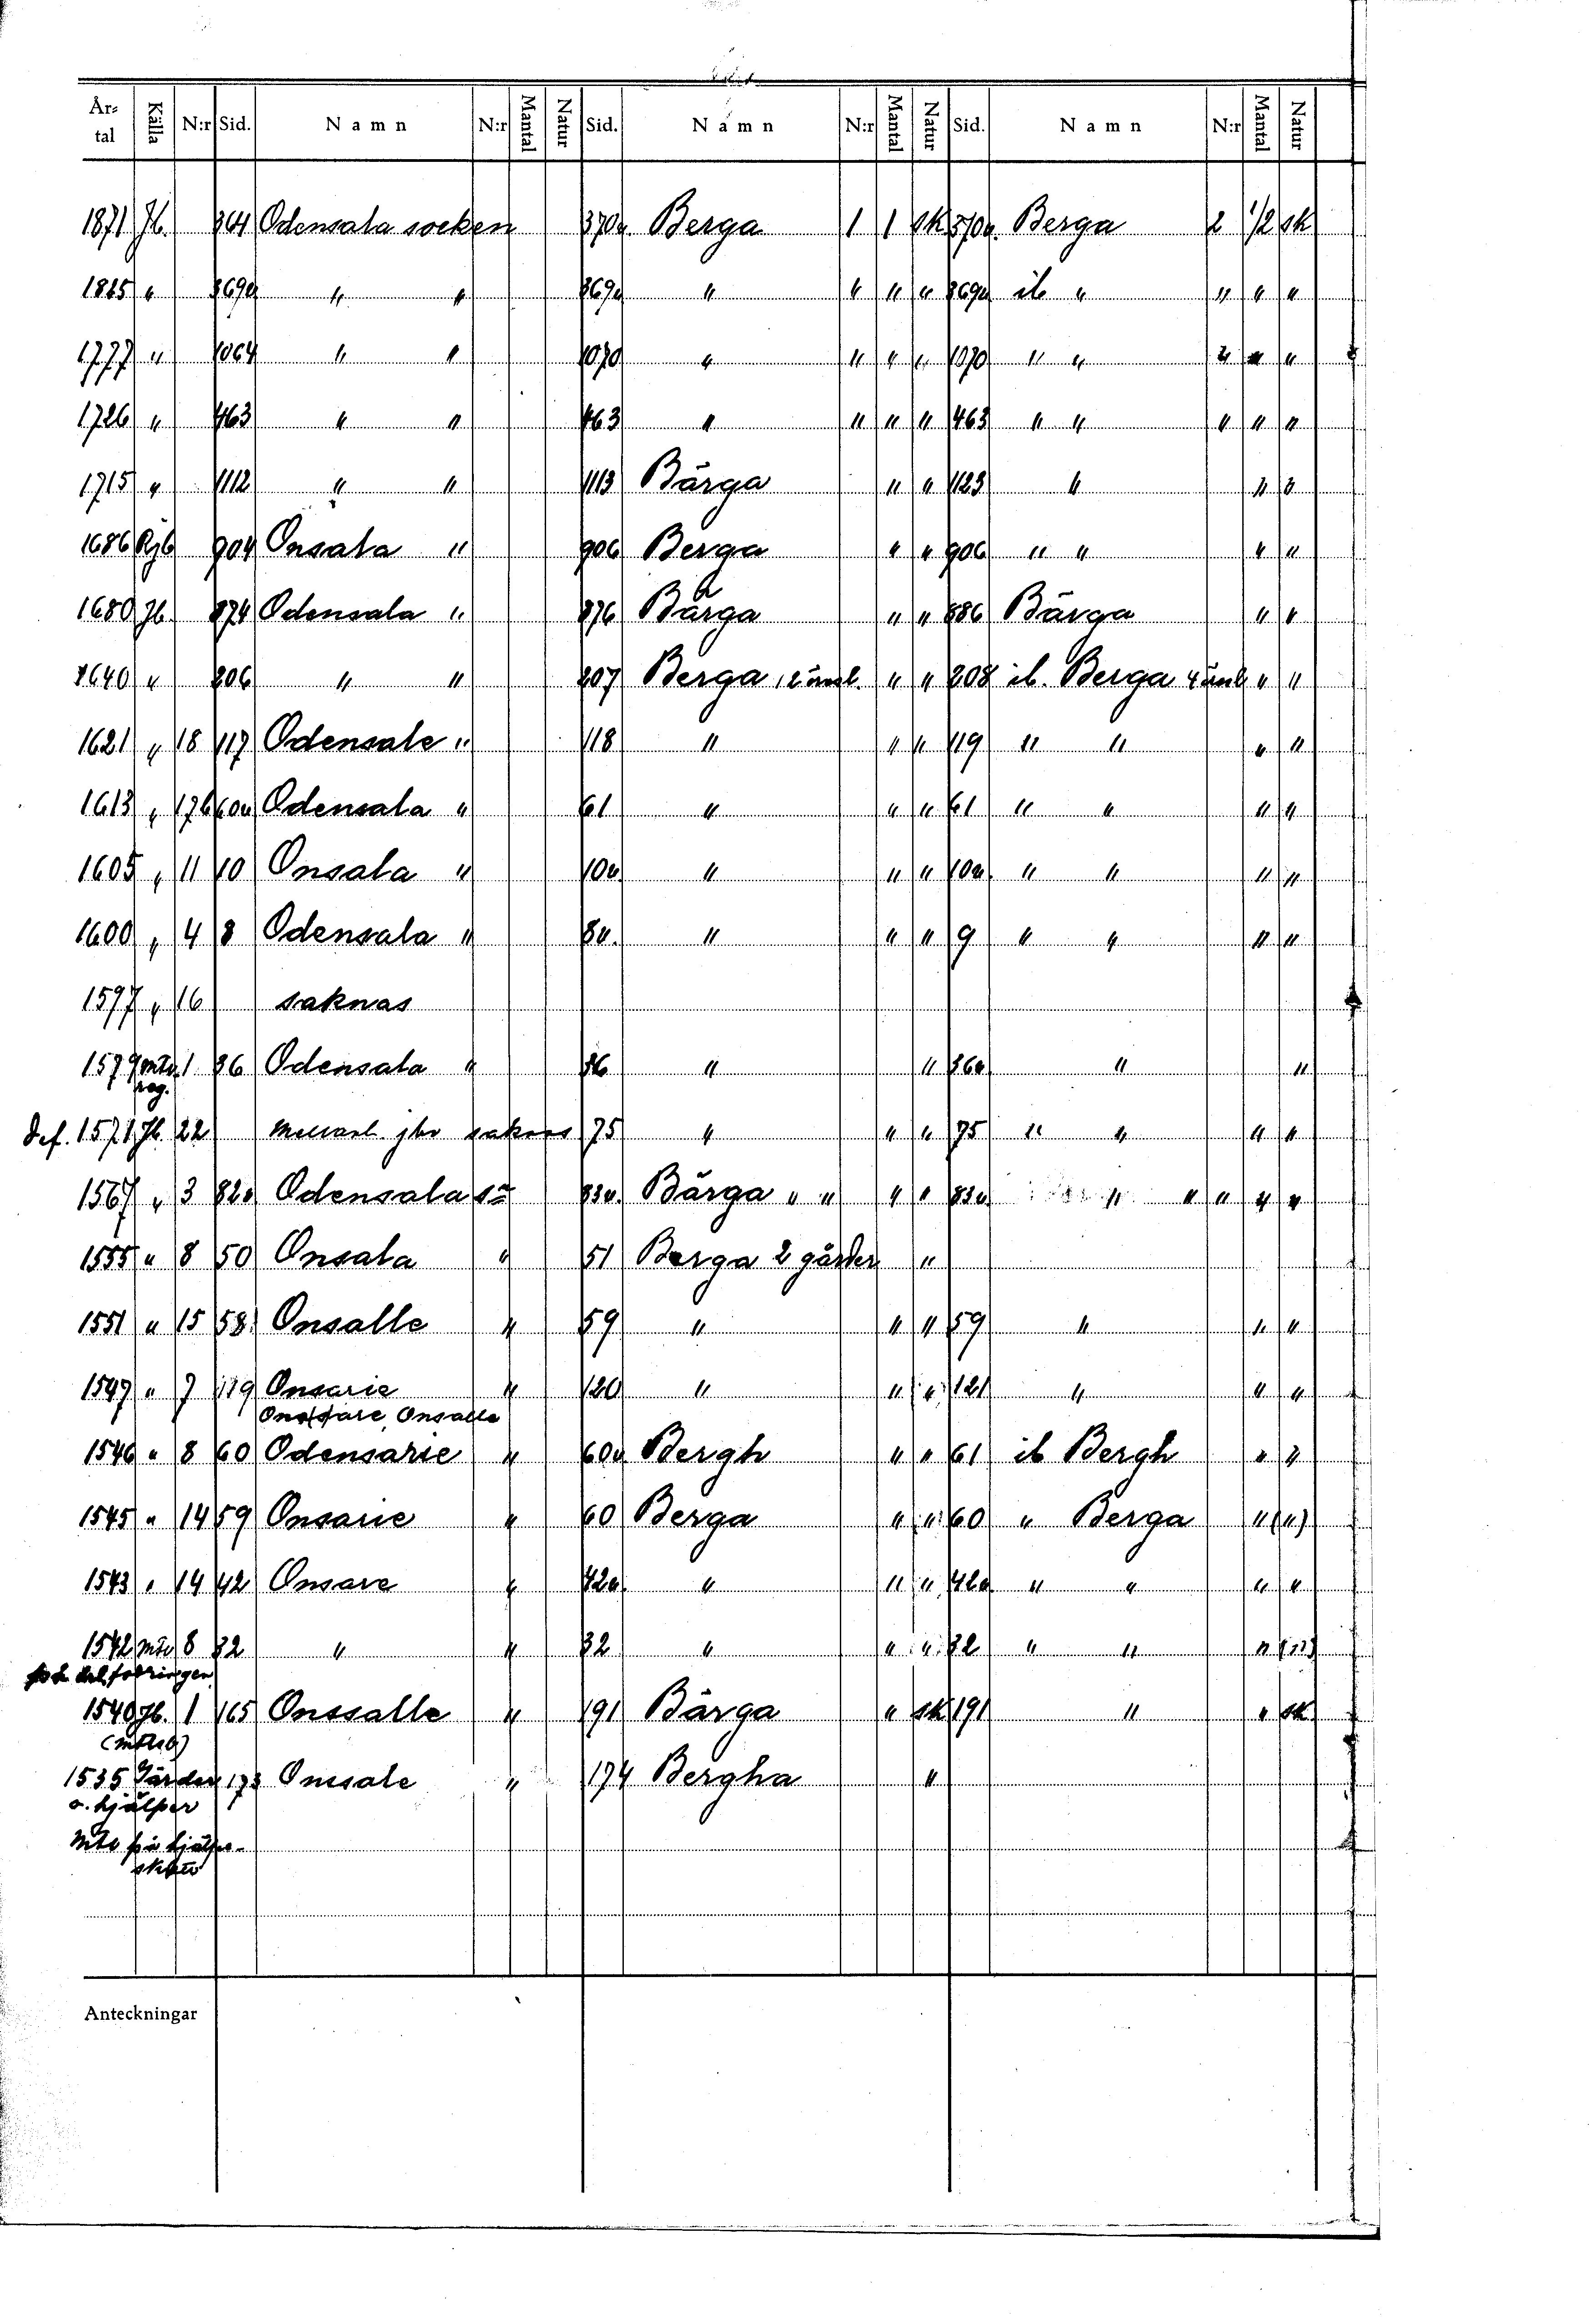 År- tal Källa N:r Sid. Namn N:r Mantal Natur Sid. Namn N:r Mantal Natur Sid. Namn N:r Mantal Natur
1871 Jb. 364 Odensala socken 370v. Berga 1 1 sk 370v. Berga 2 1/2 sk
1825 " 869v " " 869v " " " " 869v ib " " " "
1777 " 1064 " " 1070 " " " " 1070 " " " " "
1726 " 463 " " 463 " " " " 463 " " " " "
1715 " 1112 " " 1113 Bärga " " 1123 " " "
1686 Rjb 904 Onsala " 906 Berga " " 906 " " " "
1680 Jb. 874 Odensala " 876 Bärga " " 886 Bärga " "
1640 " 206 " " 207 Berga 12 öresl. " " 208 ib. Berga 4 öresl " "
1621 " 18 117 Odensale " 118 " " " 119 " " " "
1613 " 176 60v Odensala " 61 " " " 61 " " " "
1605 " 11 10 Onsala " 10v " " " 10v " " " "
1600 " 4 8 Odensala " 8v. " " " 9 " " " "
1597 " 16 saknas
1579 mtv. reg. 1 86 Odensala " 86 " " 86v " "
Def. 1571 Jb. 22 saknas 75 " " " 75 " " " "
1567 " 3 82v Odensala sn 83v. Bärga " " " " 83v " " " " "
1555 " 8 50 Onsala " 51 Berga 2 gårder "
1551 " 15 58 Onsalle " 59 " " " 59 " " "
1547 " 7 119 Onsarie " 120 " " " 121 " " "
Onssare, Onsalle
1546 " 8 60 Odensarie " 60v Bergh " " 61 ib Bergh " "
1545 " 14 59 Onsarie " 60 Berga " " 60 " Berga " (")
1543 " 14 42 Onsare " 42v " " " 42v " " " "
1542 mtv 8 32 " " 32 " " " 32 " " " (")
1540 Jb. 1 165 Onssalle " 191 Bärga " sk 191 " " sk
1535 Gärder 173 Onssale " 174 Bergha "
o. hjälper
Anteckningar